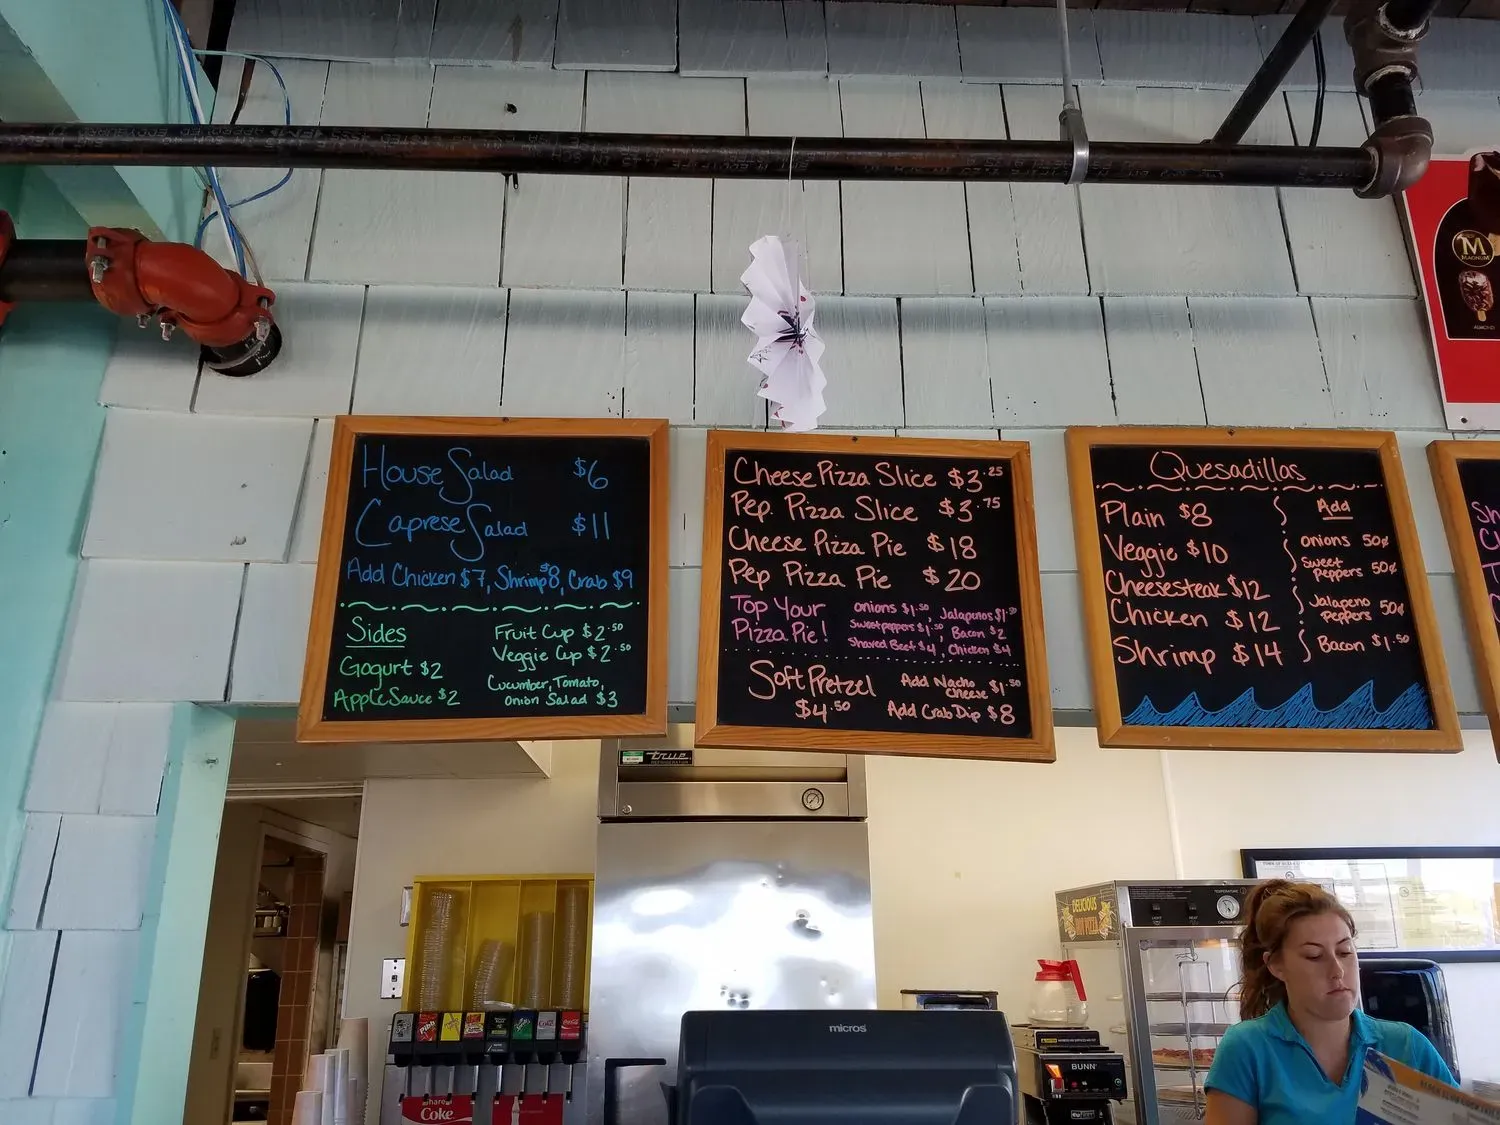 House Salad $6
Caprese Salad $11
Add Chicken $7, Shrimp $8, Crab $9
Sides
Gogurt $2
Apple Sauce $2
Fruit Cup $2.50
Veggie Cup $2.50
Cucumber, Tomato,
onion Salad $3
Cheese Pizza Slice $3.25
Pep. Pizza Slice $3.75
Cheese Pizza Pie $18
Pep Pizza Pie $20
Top Your
Pizza Pie!
onions $1.50, Jalapenos $1.50
Sweet peppers $1.50, Bacon $2
Shaved Beef $4, Chicken $4
Soft Pretzel
$4.50
Add Nacho
Cheese $1.50
Add Crab Dip $8
Quesadillas
Plain $8
Veggie $10
Cheesesteak $12
Chicken $12
Shrimp $14
Add
onions 50¢
Sweet
Peppers 50¢
Jalapeno
Peppers 50¢
Bacon $1.50
M
MAGNUM
ALMOND
true
REFRIGERATION
micros
BUNN
DELICIOUS
HOT PIZZA
TEMPERATURE
LIGHT
HEAT
Pibb
Coke
Share a
Coke